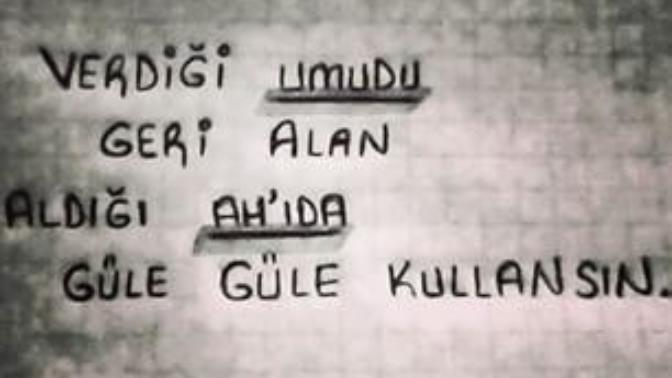 VERDİĞİ UMUDU
GERİ ALAN
ALDIĞI AH'IDA
GÜLE GÜLE KULLANSIN.